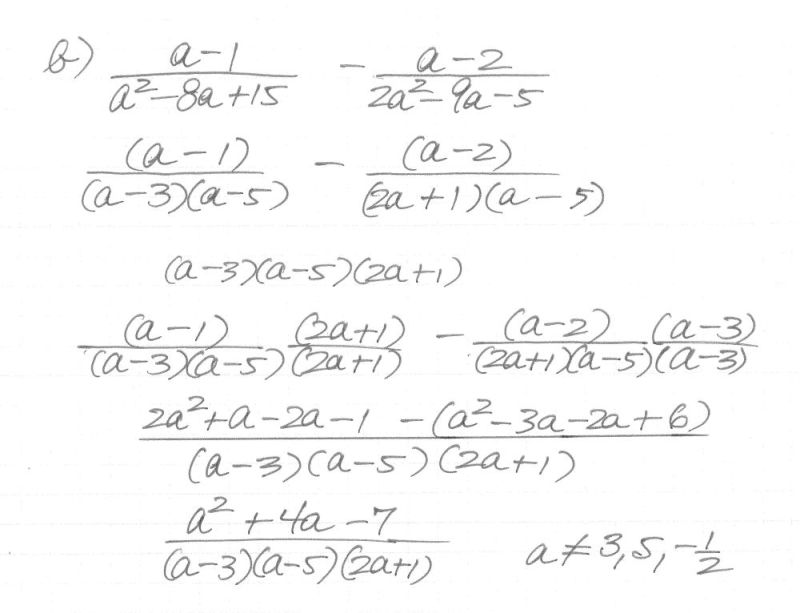 b) (a-1)/(a²-8a+15) - (a-2)/(2a²-9a-5)
(a-1)/((a-3)(a-5)) - (a-2)/((2a+1)(a-5))
(a-3)(a-5)(2a+1)
(a-1)/((a-3)(a-5)) (2a+1)/(2a+1) - (a-2)/((2a+1)(a-5)) (a-3)/(a-3)
(2a²+a-2a-1 -(a²-3a-2a+6))/((a-3)(a-5)(2a+1))
(a²+4a-7)/((a-3)(a-5)(2a+1)) a≠3,5,-1/2